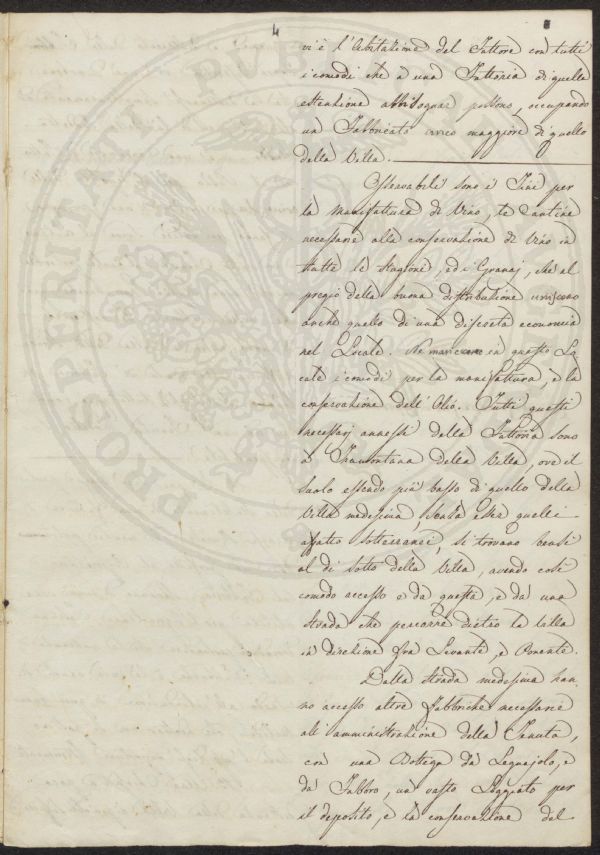 4
vi è l'Abitazione del Fattore con tutti
i comodi che a una Fattoria di quella
estenzione abbisognar possono, occupando
un Fabbricato unico maggiore di quello
della Villa.
Osservabili sono i Tini per
la Manifattura di Vino, le Cantine
necessarie alla conservazione di Vino in
tutte le Stagione, ed i Granaj, che al
pregio della buona distribuzione uniscono
anche quello di una discreta economia
nel Locale. Ne mancano in questo Lo-
cale i comodi per la manifattura, e la
conservazione dell'Olio. Tutti questi
necessarj annessi della Fattoria sono
a Tramontana della Villa, ove il
suolo essendo più basso di quello della
Villa medesima, senza esser quelli
affatto sotterranei, si trovano bensì
al di sotto della Villa, avendo così
comodo accesso e da questa, e da una
strada che percorre dietro la Villa
in direzione fra Levante, e Ponente.
Dalla strada medesima han-
no accesso altre Fabbriche necessarie
all'amministrazione della Tenuta,
con una Bottega da Legnajolo, e
da Fabbro, un vasto Loggiato per
il deposito, e la conservazione del
PROSPERITATI DVB